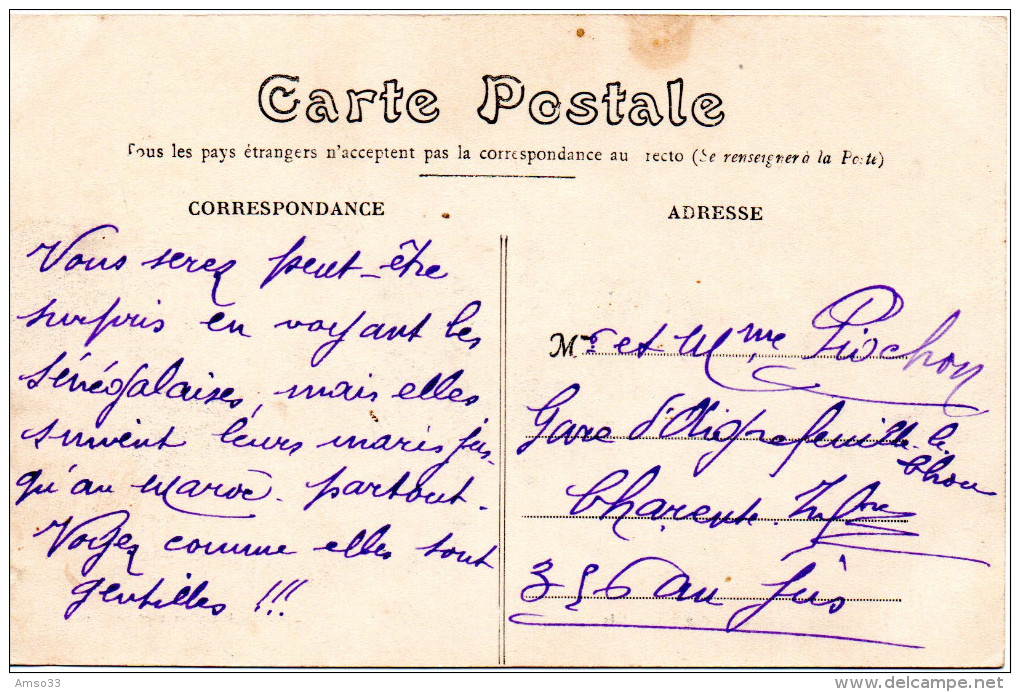 Carte Postale
Tous les pays étrangers n'acceptent pas la correspondance au recto (Se renseigner à la Poste)
CORRESPONDANCE
Vous serez peut-être
surpris en voyant les
Sénégalaises, mais elles
suivent leurs maris jus-
qu'au Maroc - partout.
Voyez comme elles sont
gentilles !!!
ADRESSE
Mr et Mme Piochon
Gare d'Aigrefeuille-le-
Thou
Charente Infre
356 au jus
Amso33
delcampe.net